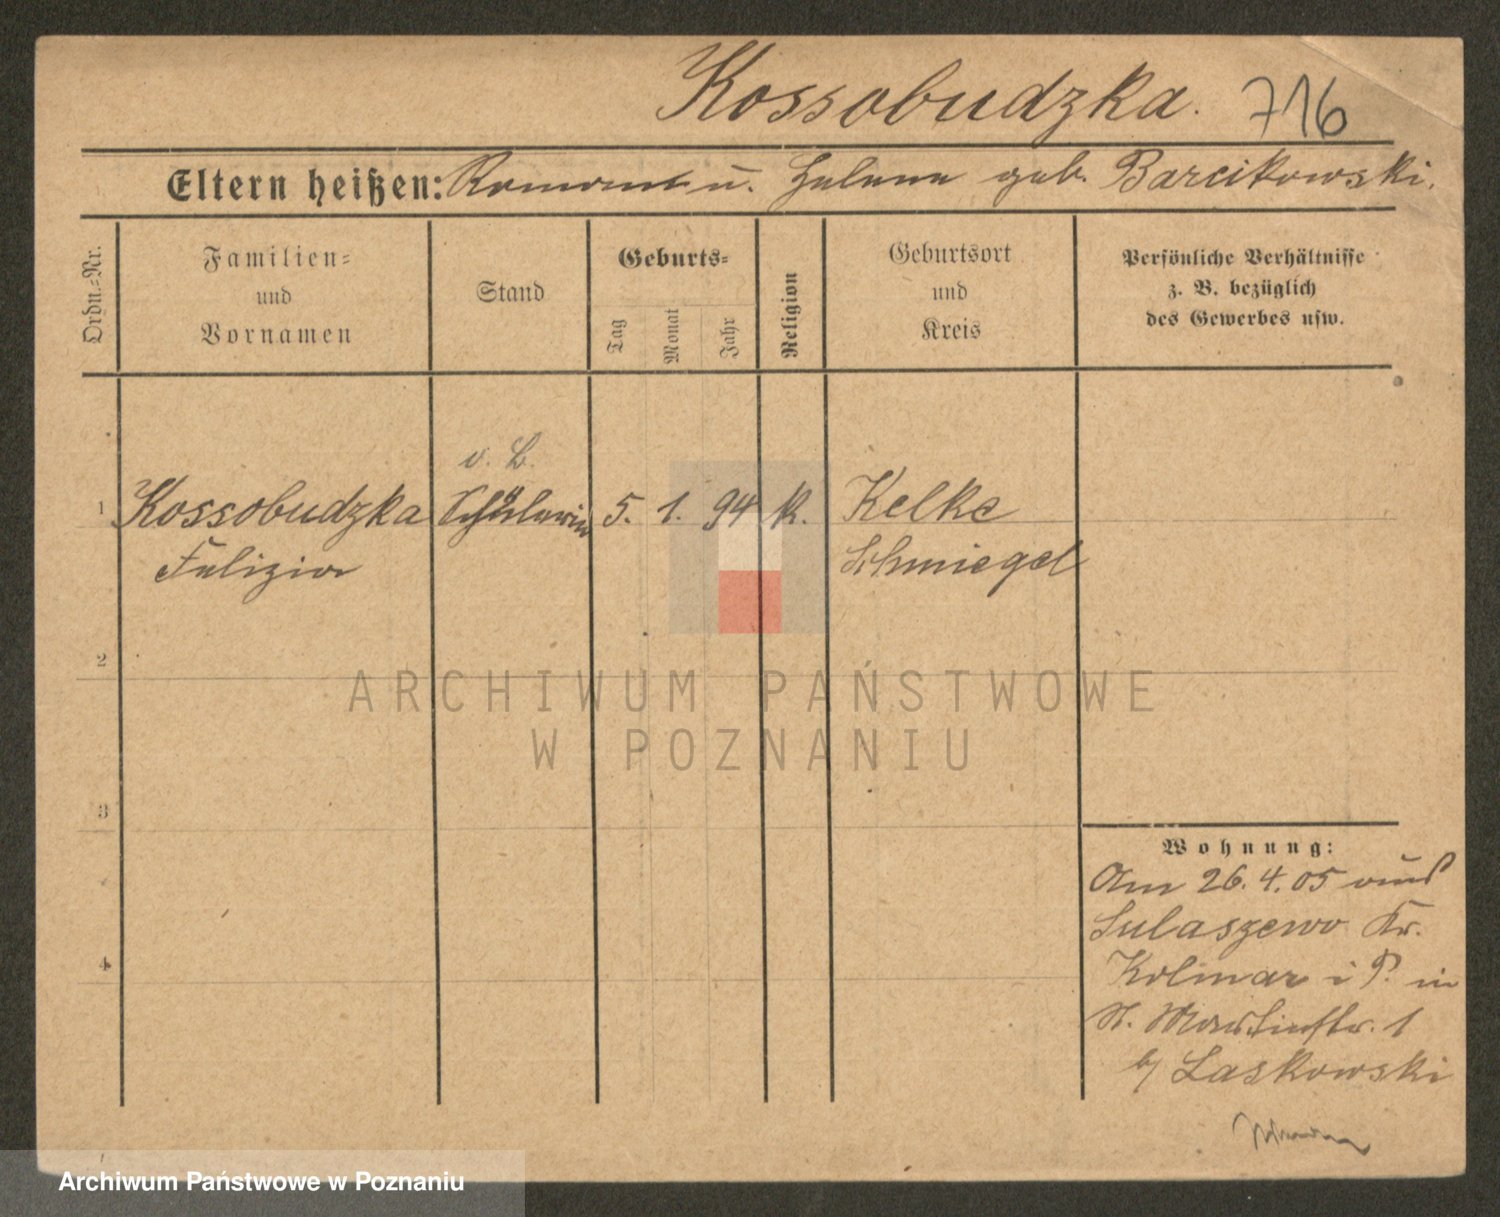 Kossobudzka. 716
Eltern heißen: Roman u. Helene geb. Barcikowski.
Ordn.-Nr.
Familien-
und
Vornamen
Stand
Geburts-
Tag
Monat
Jahr
Religion
Geburtsort
und
Kreis
Persönliche Verhältnisse
z. B. bezüglich
des Gewerbes usw.
v. B.
1 Kossobudzka Schülerin 5. 1. 94 k. Kelke
Felizia Schmiegel
2
ARCHIWUM PAŃSTWOWE
W POZNANIU
3
Wohnung:
Am 26.4.05 aus
Sulaszewo Kr.
4
Kolmar i P. in
St. Martinstr. 1
b/ Laskowski
Archiwum Państwowe w Poznaniu